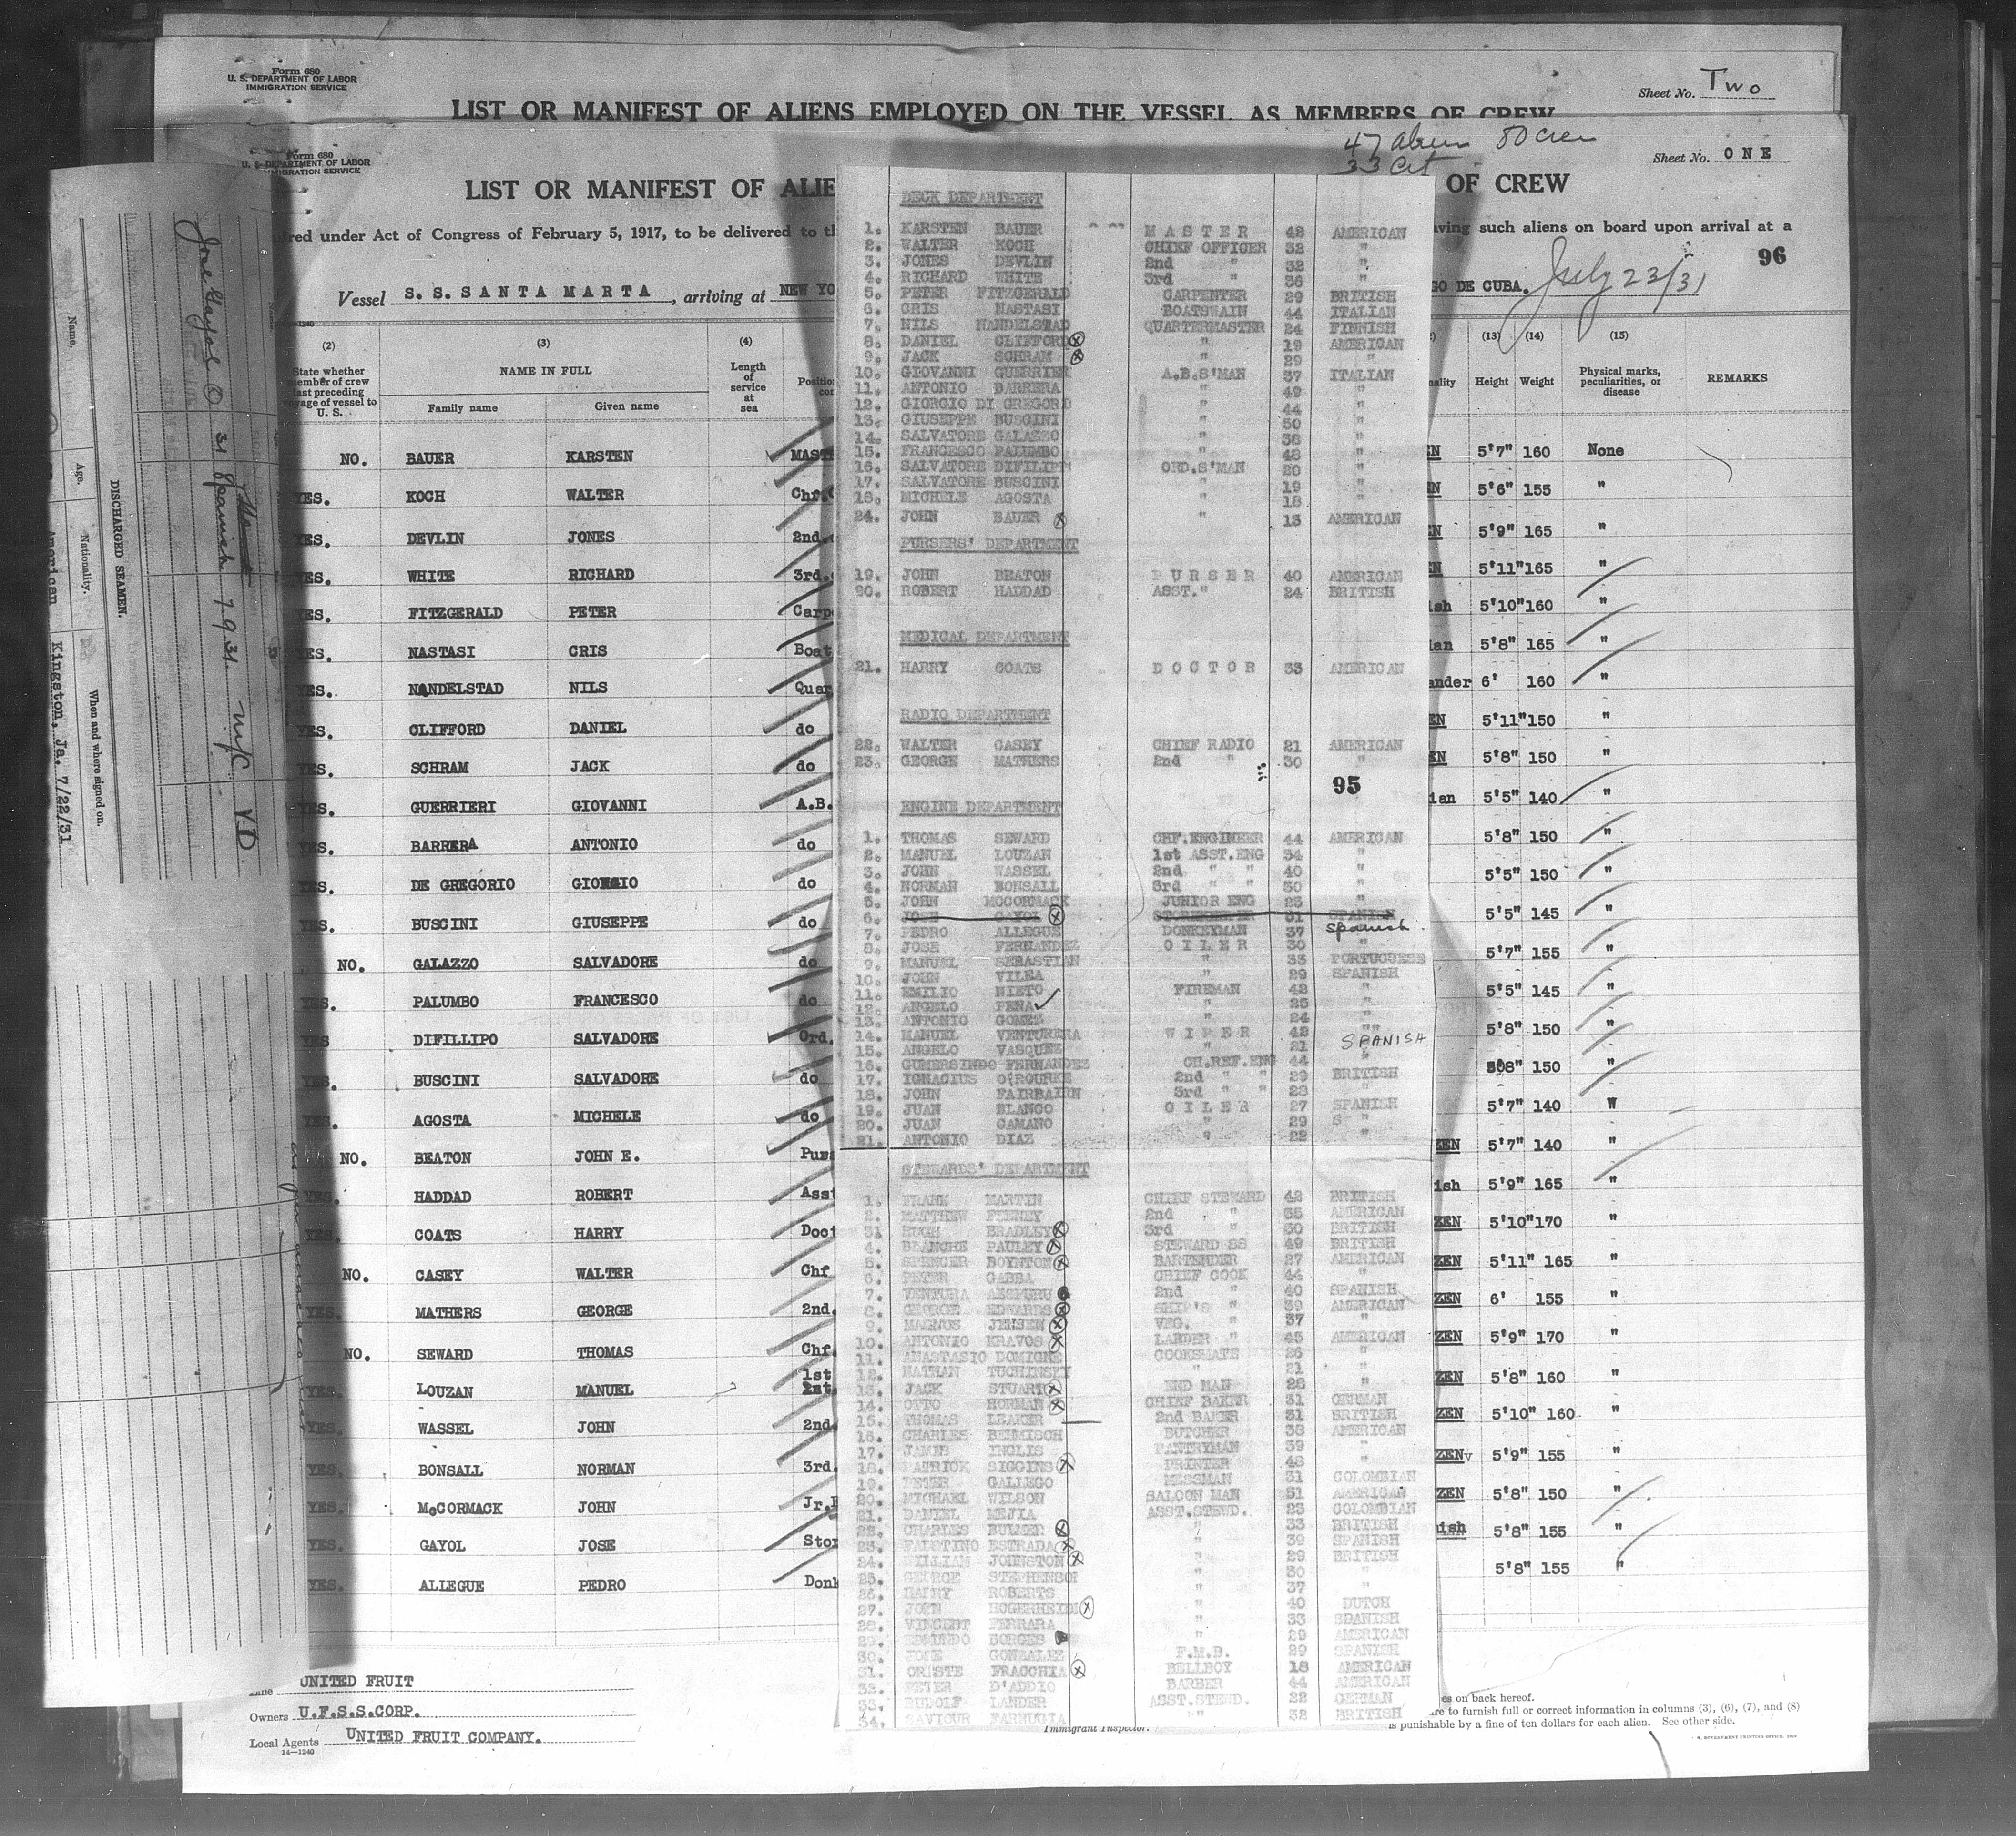 Form 680
U. S. DEPARTMENT OF LABOR
IMMIGRATION SERVICE
Sheet No. Two
LIST OR MANIFEST OF ALIENS EMPLOYED ON THE VESSEL AS MEMBERS OF CREW
Form 680
U. S. DEPARTMENT OF LABOR
IMMIGRATION SERVICE
47 alien 80 crew
33 Cit
Sheet No. ONE
LIST OR MANIFEST OF ALIE
OF CREW
red under Act of Congress of February 5, 1917, to be delivered to th
aving such aliens on board upon arrival at a
96
Vessel S. S. SANTA MARTA , arriving at NEW YO
GO DE CUBA. July 23/31
(2) (3) (4)
State whether member of crew last preceding voyage of vessel to U. S.
NAME IN FULL
Family name Given name
Length of service at sea
Positio
(13) (14) (15)
ality Height Weight Physical marks, peculiarities, or disease REMARKS
NO. BAUER KARSTEN MAST EN 5'7" 160 None
YES. KOCH WALTER Chf. EN 5'6" 155 "
YES. DEVLIN JONES 2nd. EN 5'9" 165 "
YES. WHITE RICHARD 3rd. EN 5'11" 165 "
YES. FITZGERALD PETER Carp ish 5'10" 160 "
YES. NASTASI CRIS Boat ian 5'8" 165 "
YES. NANDELSTAD NILS Quar ander 6' 160 "
YES. CLIFFORD DANIEL do EN 5'11" 150 "
YES. SCHRAM JACK do EN 5'8" 150 "
YES. GUERRIERI GIOVANNI A.B. ian 5'5" 140 "
YES. BARRERA ANTONIO do 5'8" 150 "
YES. DE GREGORIO GIORGIO do 5'5" 150 "
YES. BUSCINI GIUSEPPE do 5'5" 145 "
NO. GALAZZO SALVADORE do 5'7" 155 "
YES. PALUMBO FRANCESCO do 5'5" 145 "
YES DIFILLIPO SALVADORE Ord. 5'8" 150 "
YES. BUSCINI SALVADORE do 5'8" 150 "
YES. AGOSTA MICHELE do 5'7" 140 "
NO. BEATON JOHN E. Purs ZEN 5'7" 140 "
YES. HADDAD ROBERT Asst ish 5'9" 165 "
YES. COATS HARRY Doct ZEN 5'10" 170 "
NO. CASEY WALTER Chf ZEN 5'11" 165 "
YES. MATHERS GEORGE 2nd. ZEN 6' 155 "
NO. SEWARD THOMAS Chf. ZEN 5'9" 170 "
YES. LOUZAN MANUEL 1st ZEN 5'8" 160 "
YES. WASSEL JOHN 2nd ZEN 5'10" 160 "
YES. BONSALL NORMAN 3rd. ZEN 5'9" 155 "
YES. McCORMACK JOHN Jr. ZEN 5'8" 150 "
YES. GAYOL JOSE Stor ish 5'8" 155 "
YES. ALLEGUE PEDRO Donk 5'8" 155 "
Line UNITED FRUIT
Owners U.F.S.S.CORP.
Local Agents UNITED FRUIT COMPANY.
14—1240
Immigrant Inspector.
es on back hereof.
re to furnish full or correct information in columns (3), (6), (7), and (8)
is punishable by a fine of ten dollars for each alien. See other side.
DECK DEPARTMENT
1. KARSTEN BAUER MASTER 42 AMERICAN
2. WALTER KOCH CHIEF OFFICER 32 "
3. JONES DEVLIN 2nd " 32 "
4. RICHARD WHITE 3rd " 36 "
5. PETER FITZGERALD CARPENTER 29 BRITISH
6. CRIS NASTASI BOATSWAIN 44 ITALIAN
7. NILS NANDELSTAD QUARTERMASTER 24 FINNISH
8. DANIEL CLIFFORD " 19 AMERICAN
9. JACK SCHRAM " 29 "
10. GIOVANNI GUERRIER A.B.S'MAN 37 ITALIAN
11. ANTONIO BARRERA " 49 "
12. GIORGIO DI GREGORI " 44 "
13. GIUSEPPE BUSCINI " 50 "
14. SALVATORE GALAZZO " 38 "
15. FRANCESCO PALUMBO " 48 "
16. SALVATORE DIFILIPP ORD.S'MAN 20 "
17. SALVATORE BUSCINI " 19 "
18. MICHELE AGOSTA " 18 "
24. JOHN BAUER " 13 AMERICAN
PURSERS' DEPARTMENT
19. JOHN BEATON PURSER 40 AMERICAN
20. ROBERT HADDAD ASST." 24 BRITISH
MEDICAL DEPARTMENT
21. HARRY COATS DOCTOR 33 AMERICAN
RADIO DEPARTMENT
22. WALTER CASEY CHIEF RADIO 21 AMERICAN
23. GEORGE MATHERS 2nd " 30 "
95
ENGINE DEPARTMENT
1. THOMAS SEWARD CHF.ENGINEER 44 AMERICAN
2. MANUEL LOUZAN 1st ASST.ENG 34 "
3. JOHN WASSEL 2nd " " 40 "
4. NORMAN BONSALL 3rd " " 30 "
5. JOHN MCCORMACK JUNIOR ENG 23 "
6. JOSE GAYOL STOREKEEPER 31 SPANISH
7. PEDRO ALLEGUE DONKEYMAN 37 Spanish.
8. JOSE FERNANDEZ OILER 30 "
9. MANUEL SEBASTIAN " 33 PORTUGUESE
10. JOHN VILEA " 29 SPANISH
11. EMILIO NIETO FIREMAN 42 "
12. ANGELO PENA " 25 "
13. ANTONIO GOMEZ " 24 "
14. MANUEL VENTURERA WIPER 42 "
15. ANGELO VASQUEE " 21 SPANISH
16. GUMERSINDO FERNANDEZ CH.REF.ENG 44 "
17. IGNACIUS O'ROURKE 2nd " " 29 BRITISH
18. JOHN FAIRBAIRN 3rd " " 28
19. JUAN BLANCO OILER 27 SPANISH
20. JUAN CAMANO " 29 "
21. ANTONIO DIAZ " 22 "
STEWARDS' DEPARTMENT
1. FRANK MARTIN CHIEF STEWARD 42 BRITISH
2. MATTHEW FEENEY 2nd " 35 AMERICAN
3. HUGH BRADLEY 3rd " 30 BRITISH
4. BLANCHE PAULEY STEWARDESS 49 BRITISH
5. SPENCER BOYNTON BARTENDER 27 AMERICAN
6. PETER GABBA CHIEF COOK 44 "
7. VENTURA ASSPURU 2nd " 40 SPANISH
8. GEORGE EDWARDS SHIP'S " 39 AMERICAN
9. MAGNUS JENSEN VEG. " 37 "
10. ANTONIO KRAVOS LARDER " 45 AMERICAN
11. ANASTASIO DOMIGNE COOKSMATE 26 "
12. NATHAN TUCHINSKY " 21 "
13. JACK STUART END MAN 28 "
14. OTTO HORMAN CHIEF BAKER 31 GERMAN
15. THOMAS LEAKER 2nd BAKER 31 BRITISH
16. CHARLES BEHMISCH BUTCHER 38 AMERICAN
17. JAMES INGLIS PANTRYMAN 39 "
18. PATRICK SIGGINS PRINTER 48 "
19. PETER GALLEGO MESSMAN 31 COLOMBIAN
20. MICHAEL WILSON SALOON MAN 31 AMERICAN
21. DANIEL MEJIA ASST.STEWD. 23 COLOMBIAN
22. CHARLES BULMER " 33 BRITISH
23. FAUSTINO ESTRADA " 39 SPANISH
24. WILLIAM JOHNSTON " 29 BRITISH
25. GEORGE STEPHENSON " 30 "
26. HARRY ROBERTS " 37 "
27. JOHN HOGERHEIDE " 40 DUTCH
28. VINCENT FERRARA " 33 SPANISH
29. EDMUNDO BORGES " 29 AMERICAN
30. JOSE GONZALEZ F.M.B. 29 SPANISH
31. ORESTE FRACCHIA BELLBOY 18 AMERICAN
32. PETER D'ADDIO BARBER 44 AMERICAN
33. RUDOLF LANDER ASST.STEWD. 22 GERMAN
34. SAVIOUR FARRUGIA " 32 BRITISH
Jose Gayol 31 Spanish 7 9 31 N/C V.D
DISCHARGED SEAMEN.
Name. Age. Nationality. When and where signed on.
American Kingston, Ja. 7/22/31